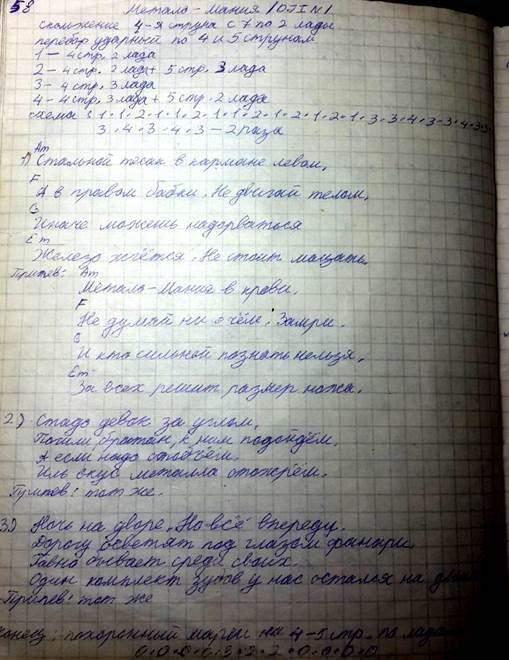 58 Метало-Мания /OJIN/
скольжение 4-я струна с 7 по 2 лады
перебор ударный по 4 и 5 струнам
1 – 4 стр. 2 лада
2 – 4 стр. 2 лада + 5 стр. 3 лада
3 – 4 стр. 3 лада
4 – 4 стр. 3 лада + 5 стр. 2 лада
3 • 4 • 3 • 4 • 3 – 2 раза
Am
1) Стальной тесак в кармане левом,
F
А в правом бабки. Не двигай телом,
G
Иначе можешь надорваться
Em
Железо жгётся. Не стоит
Припев: Am
Метало-Мания в крови.
F
Не думай ни о чём. Замри.
G
И кто сильной познать нельзя,
Em
За всех решит размер ножа.
2) Стадо девок за углом,
Пошли братан, к ним подойдём,
А если надо
Иль вкус металла
Припев: тот же.
3) Ночь на дворе. Но всё впереду.
Дорогу осветят под глазом фонари
Говно бывает среди своих.
Один комплект зубов у нас остался на
Припев: тот же
Конец: похоронный марш на 4-5 стр. по ладам